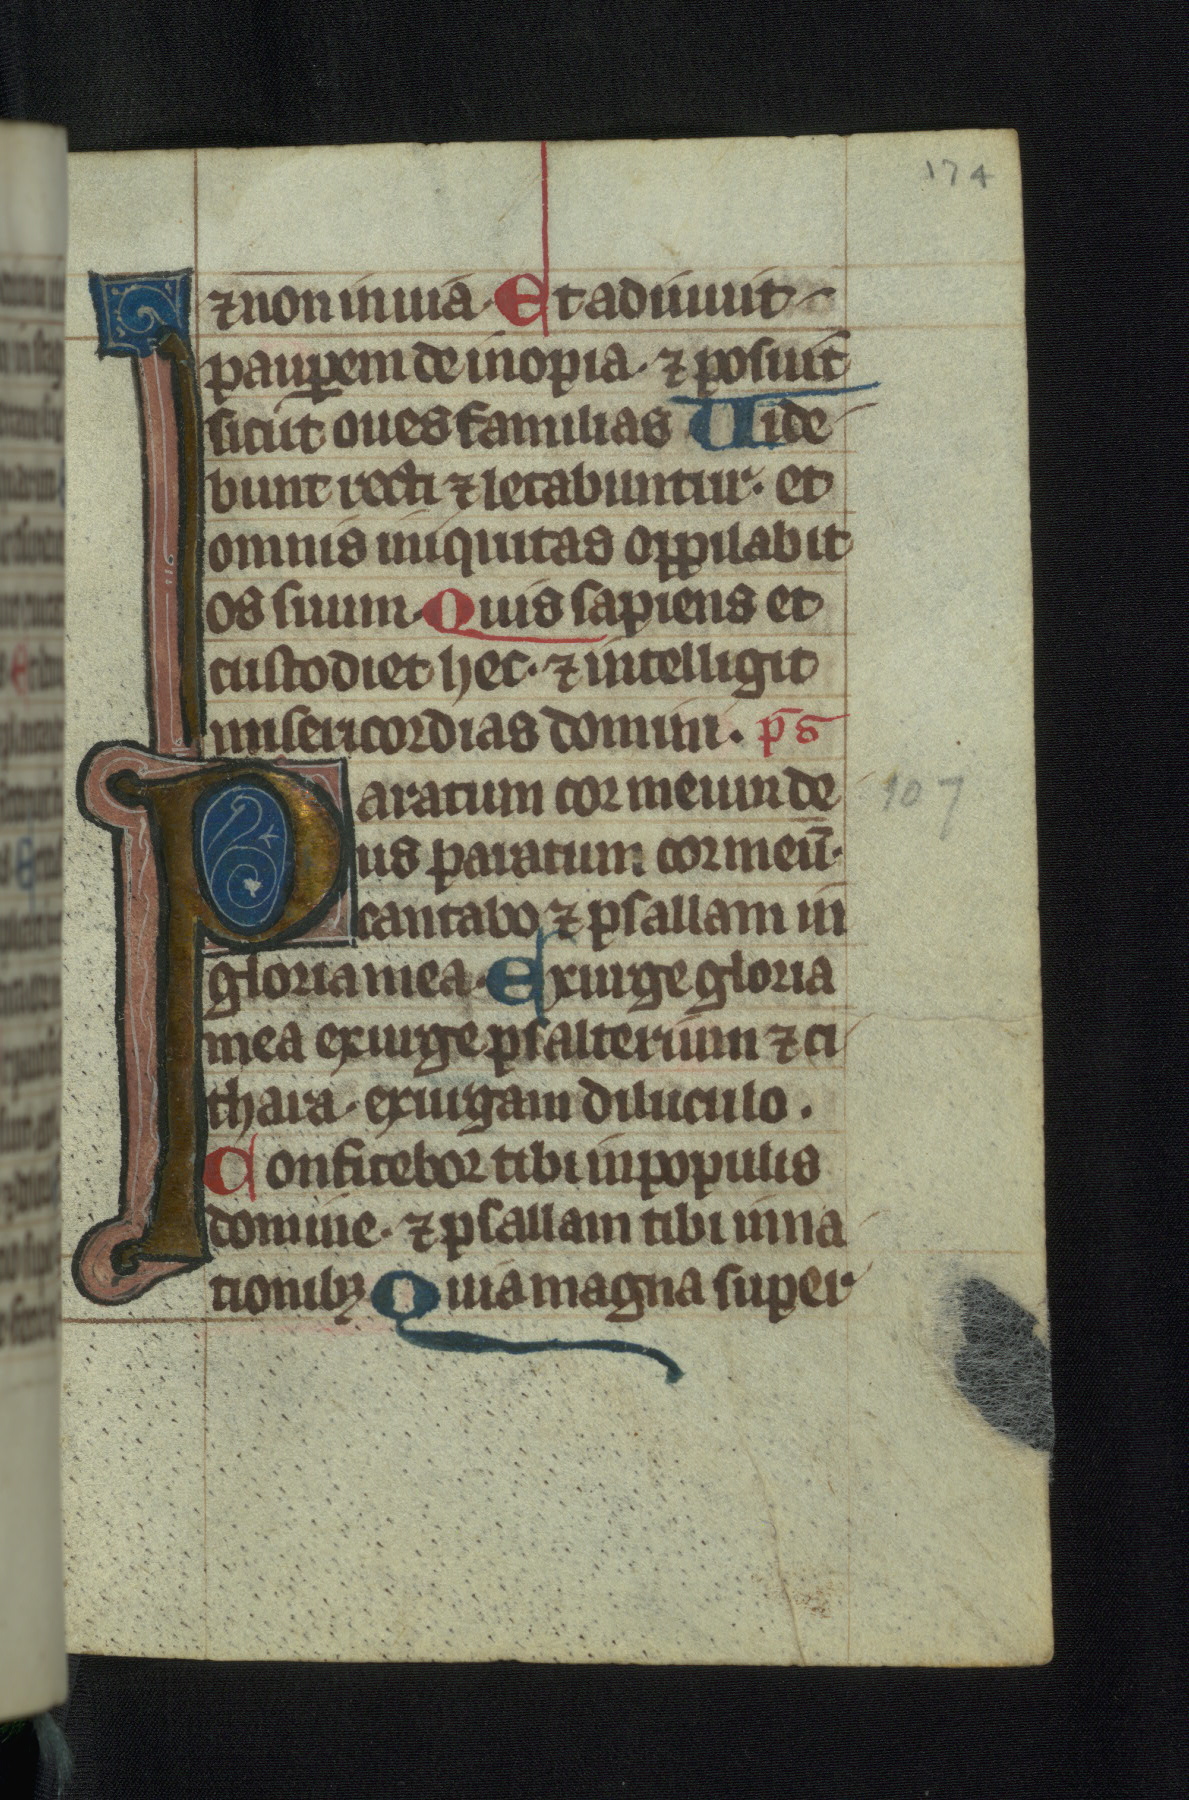 174
⁊ non in uia. Et adiuuit
paup̱em de inopia. ⁊ posuit
sicut oues familias Uide
bunt recti ⁊ letabuntur. et
omnis iniquitas oppilabit
os suum. Quis sapiens et
custodiet hec. ⁊ intelligit
misericordias domini. p̄s
Paratum cor meum de
us paratum cor meū.
cantabo ⁊ psallam in
gloria mea. Exurge gloria
mea exurge psalterium ⁊ ci
thara. exurgam diluculo.
Confitebor tibi in populis
domine. ⁊ psallam tibi in na
tionibꝫ Quia magna super
107